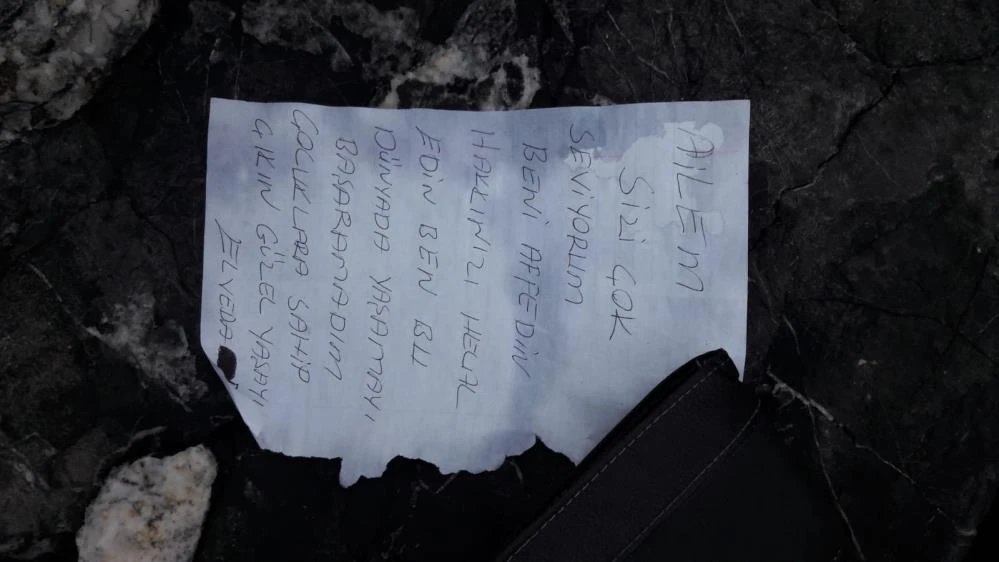 AİLEM
SİZİ ÇOK
SEVİYORUM
BENİ AFFEDİN
HAKKINIZI HELAL
EDİN BEN BU
DÜNYADA YAŞAMAYI
BAŞARAMADIM
ÇOLUKLARA SAHİP
ÇIKIN GÜZEL YAŞAYI
ELVEDA